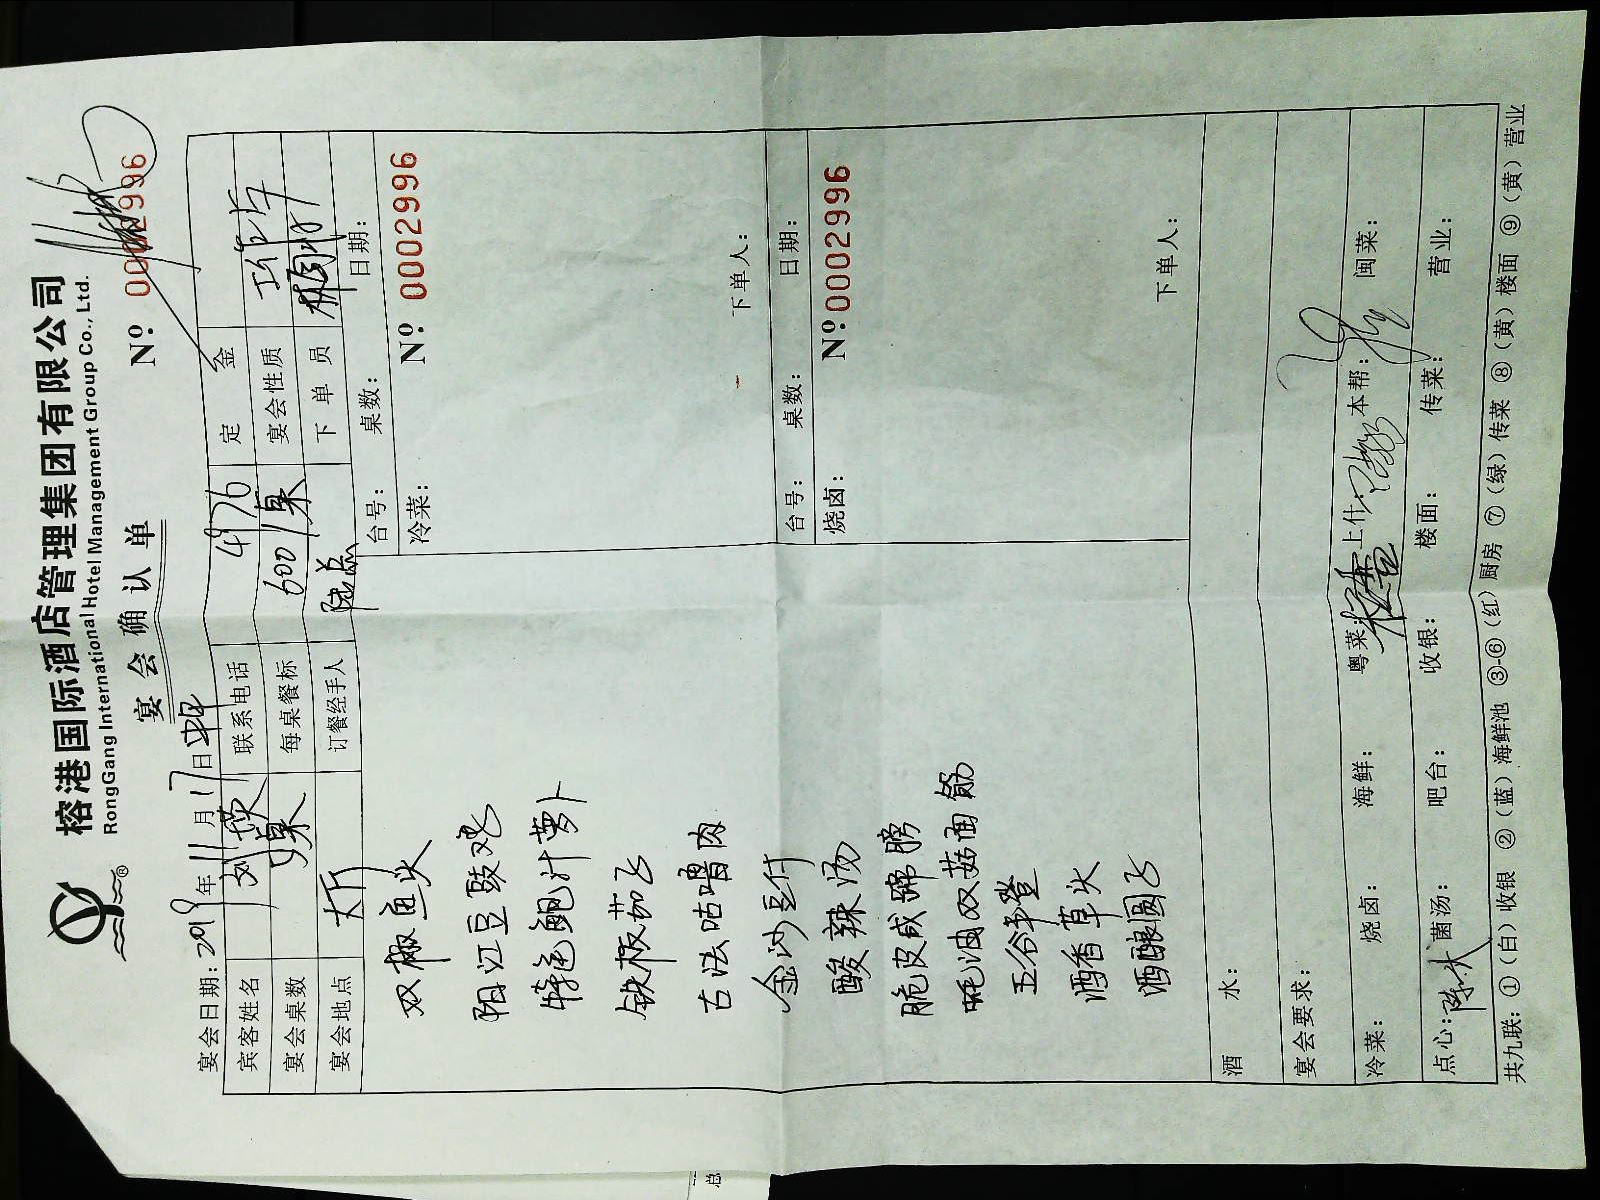 榕港国际酒店管理集团有限公司
RongGang International Hotel Management Group Co., Ltd.
宴会确认单
Nº: 0002996
宴会日期: 2019年11月17日
宾客姓名 刘 联系电话 4976 定金
宴会桌数 9桌 每桌餐标 600/桌 宴会性质
宴会地点 大厅 订餐经手人 陆总 下单员
双椒鱼头
阳江豆豉
特色鲍汁萝卜
铁板茄飞
古法咕噜肉
金沙豆仔
酸辣汤
脆皮咸蹄膀
蚝油双菇面筋
五谷丰登
酒香草头
酒酿圆飞
台号: 桌数: 日期:
冷菜: Nº: 0002996
下单人:
台号: 桌数: 日期:
烧卤: Nº: 0002996
下单人:
酒水:
宴会要求:
冷菜: 烧卤: 海鲜: 粤菜: 上什: 本帮: 闽菜:
点心: 菌汤: 吧台: 收银: 楼面: 传菜: 营业:
共九联: ①(白)收银 ②(蓝)海鲜池 ③-⑥(红)厨房 ⑦(绿)传菜 ⑧(黄)楼面 ⑨(黄)营业
总